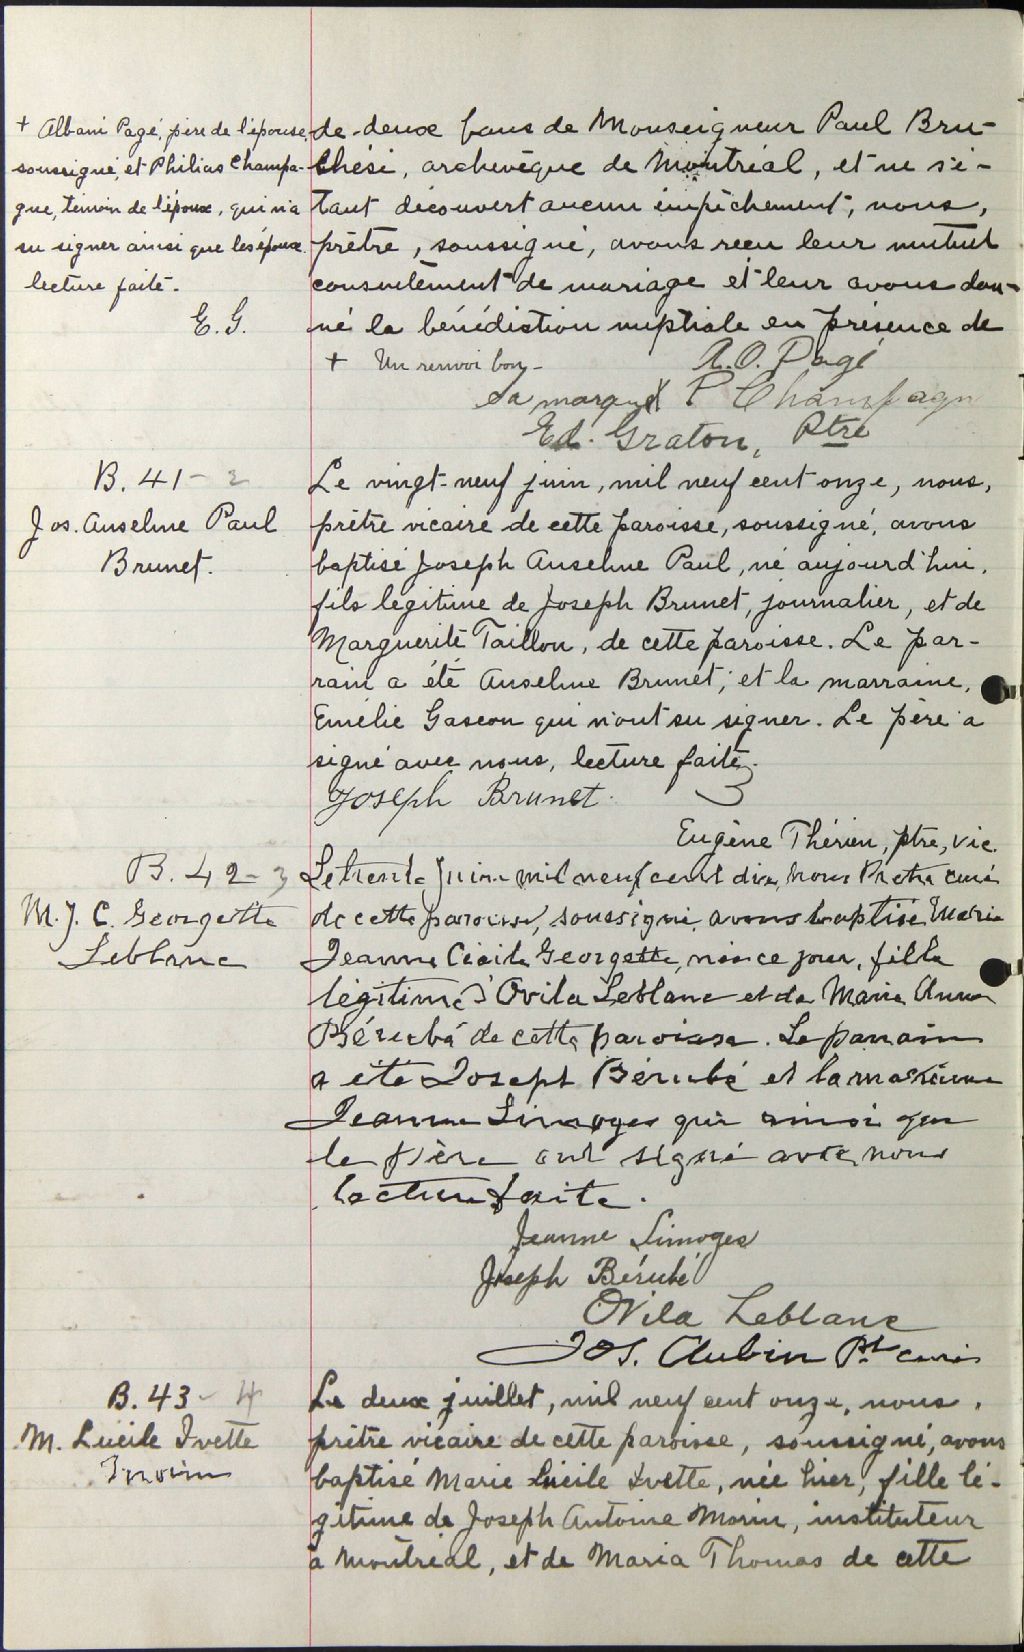 + Albani Pagé, père de l'épouse,
soussigné, et Philias Champa-
gne, témoin de l'époux, qui n'a
su signer ainsi que les époux.
lecture faite.
E. G.
de deux bans de Monseigneur Paul Bru-
chési, archevêque de Montréal, et ne s'é-
tant découvert aucun empêchement, nous,
prêtre, soussigné, avons reçu leur mutuel
consentement de mariage et leur avons don-
né la bénédiction nuptiale en présence de
+ Un renvoi bon -
A. O. Pagé
sa marque X P Champagn
Ed. Graton, Ptre
B. 41 - 2
Jos. Anselme Paul
Brunet.
Le vingt-neuf juin, mil neuf cent onze, nous,
prêtre vicaire de cette paroisse, soussigné, avons
baptisé Joseph Anselme Paul, né aujourd'hui,
fils légitime de Joseph Brunet, journalier, et de
Marguerite Taillon, de cette paroisse. Le par-
rain a été Anselme Brunet, et la marraine,
Emélie Gascon qui n'ont su signer. Le père a
signé avec nous, lecture faite.
Joseph Brunet.
Eugène Thérien, ptre, vic.
B. 42 - 3
M. J. C. Georgette
Leblanc
Le trente Juin mil neuf cent dix, nous Pretre curé
de cette paroisse, soussigné avons baptisé Marie
Jeanne Cécile Georgette, née ce jour, fille
légitime d'Ovila Leblanc et de Marie Anna
Bérubé de cette paroisse. Le parrain
a été Joseph Bérubé et la marraine
Jeanne Limoges qui ainsi que
le père ont signé avec nous
lecture faite.
Jeanne Limoges
Joseph Bérubé
Ovila Leblanc
Jos. Aubin Pt curé
B. 43 - 4
M. Lucile Ivette
Morin
Le deux juillet, mil neuf cent onze, nous,
prêtre vicaire de cette paroisse, soussigné, avons
baptisé Marie Lucile Ivette, née hier, fille lé-
gitime de Joseph Antoine Morin, instituteur
à Montréal, et de Maria Thomas de cette